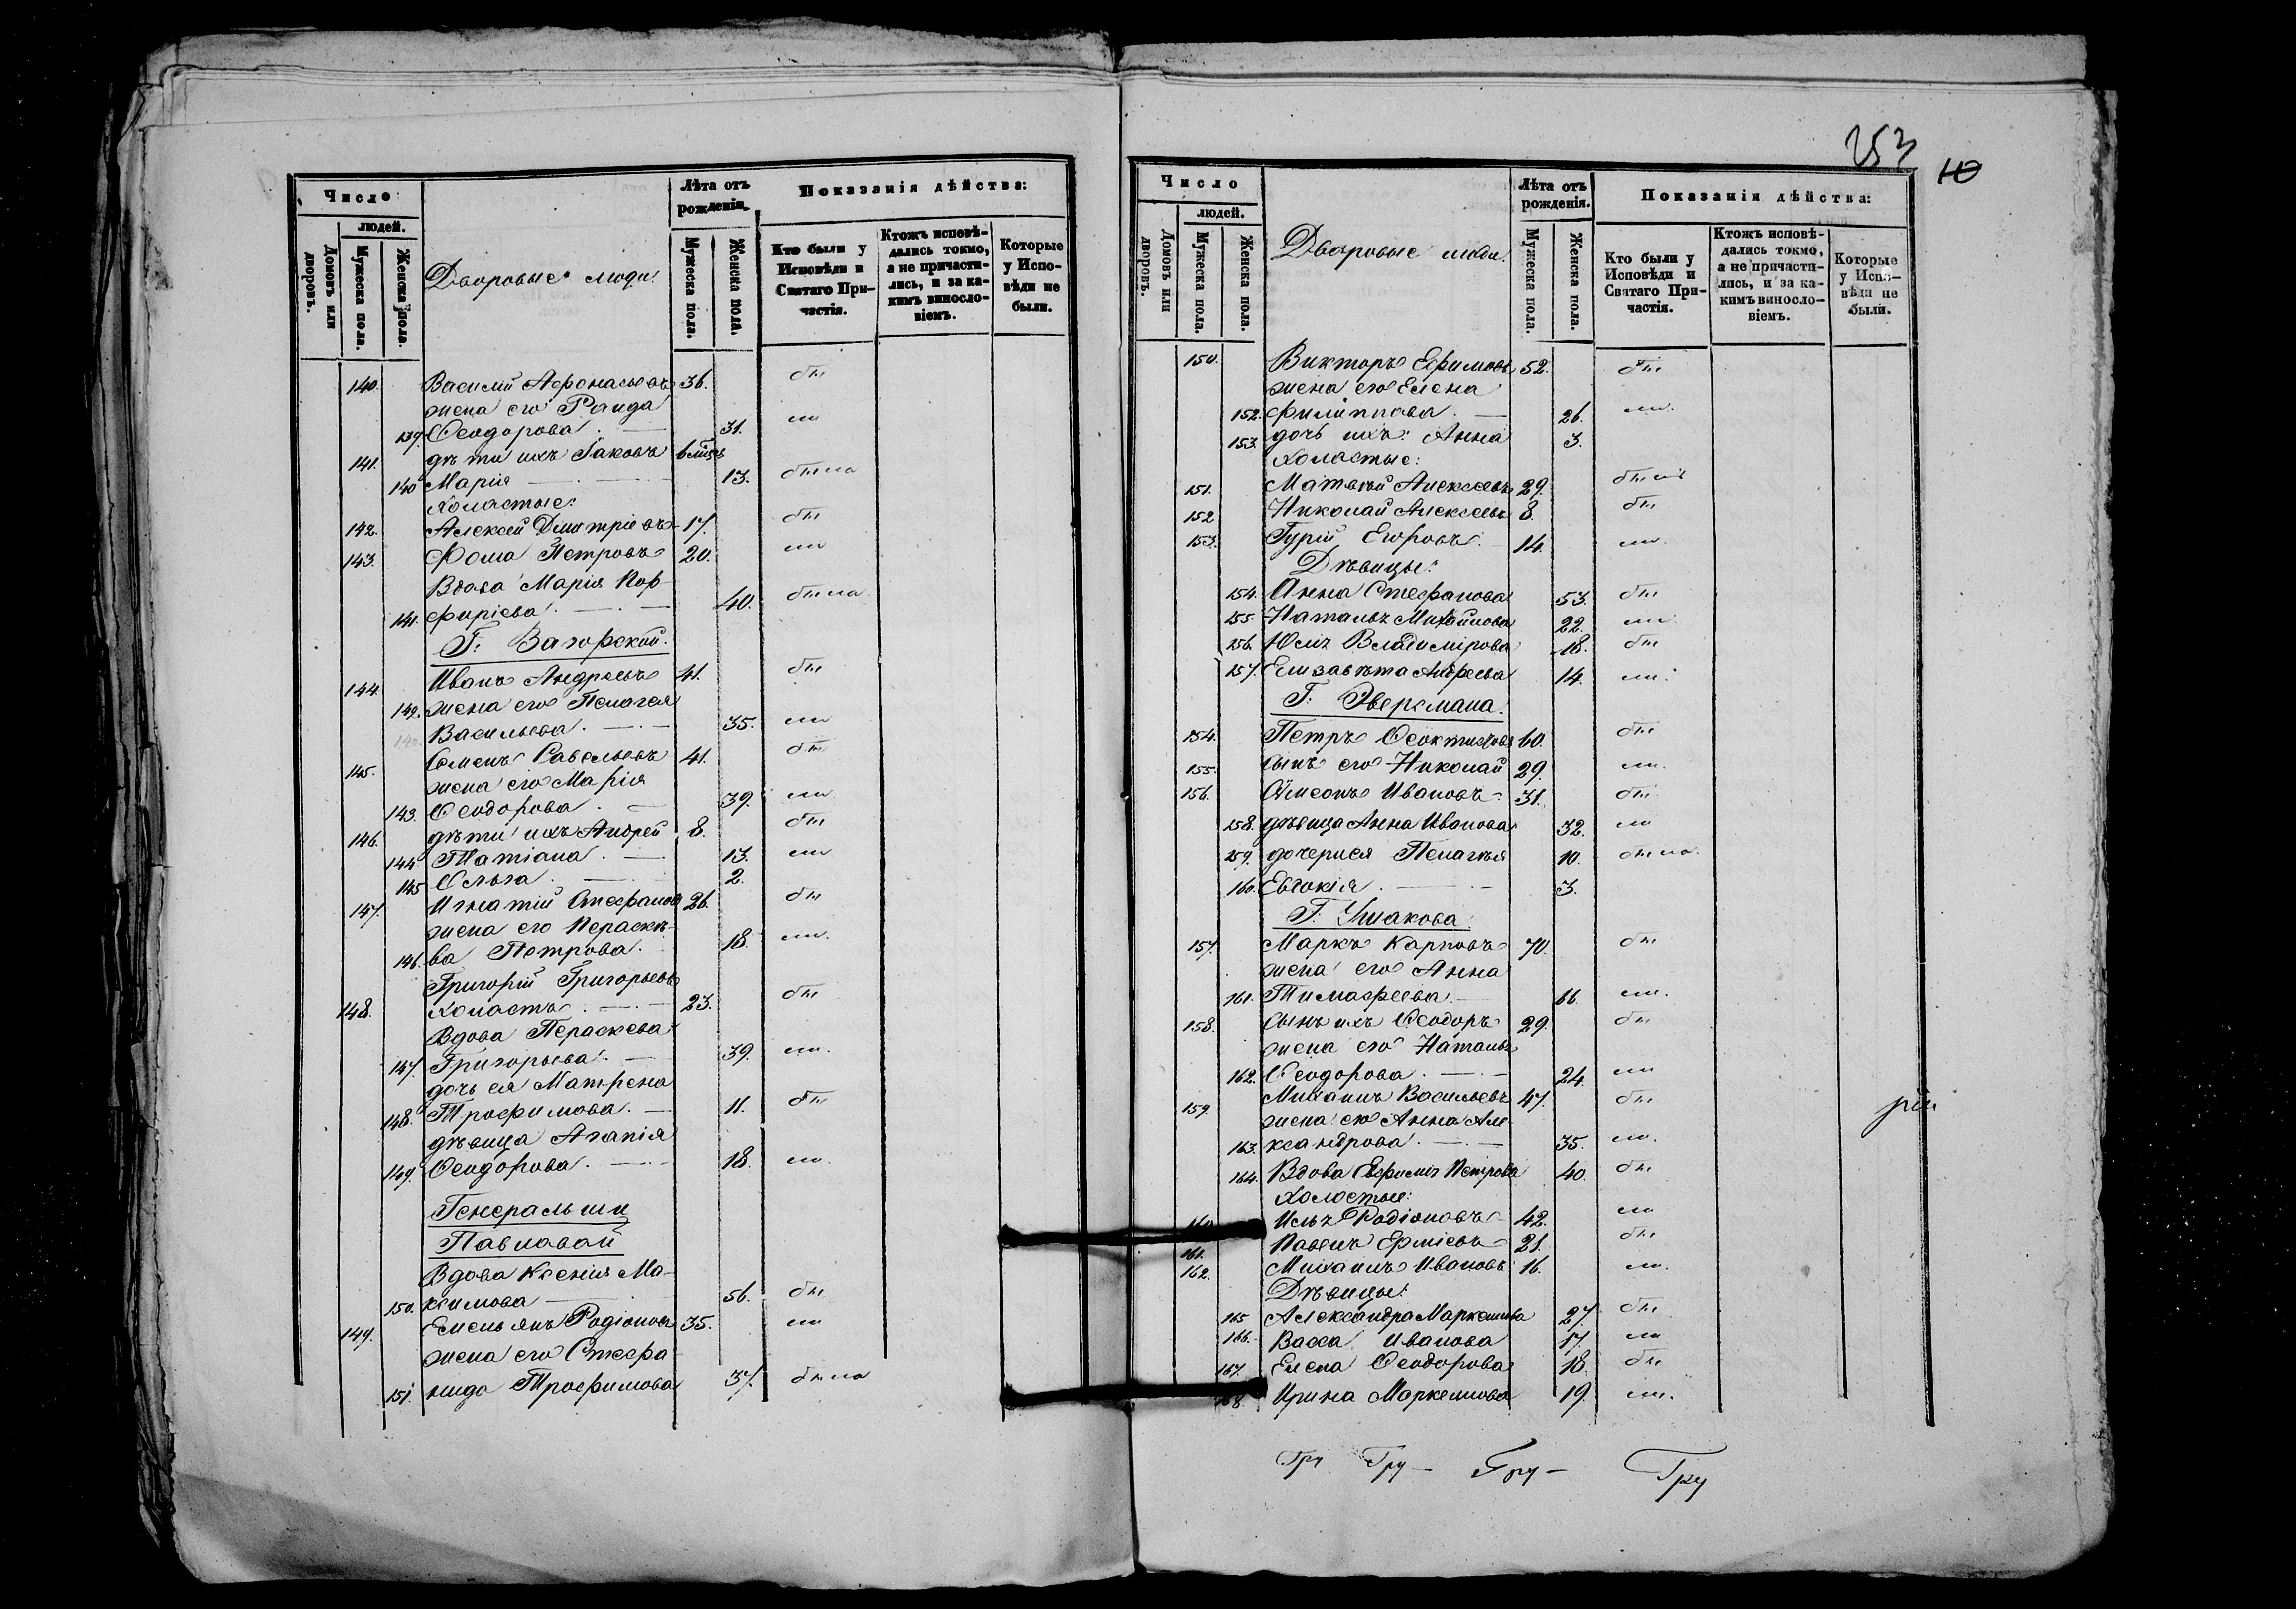 Число
людей.
Домовъ или дворовъ.
Мужеска пола.
Женска пола.
Дворовые люди.
Лѣта отъ рожденія.
Мужеска пола.
Женска пола.
Показанія дѣйства:
Кто были у Исповѣди и Святаго Причастія.
Ктожъ исповѣдались токмо, а не причастились, и за какимъ винословіемъ.
Которые у Исповѣди не были.
140. Василій Афонасьевъ 36. бы
жена его Раида
139. Ѳеодорова 31. ли
141. дѣти ихъ Іаковъ
140 Марія 13. были
Холостые:
142. Алексѣй Димитріевъ 17. бы
143. Фома Петровъ 20. ли
Вдова Марія Пор-
141. фиріева. 40. были
Г. Загорской.
144 Иванъ Андреевъ 41. бы
142. жена его Пелагея
Васильева. 35. ли
145. Семенъ Савельевъ 41. бы
жена его Марія
143. Ѳеодорова. 39. ли
146. дѣти ихъ Андрей 8. бы
144 Татіана. 13. ли
145 Ольга. 2.
147. Игнатій Стефановъ 26. бы
жена его Параске-
146. ва Петрова. 18. ли.
Григорій Григорьевъ
148. холостъ. 23. бы
Вдова Параскева
147. Григорьева. 39. ли.
дочь ея Матрена
148. Трофимова. 11. бы
дѣвица Агапія
149. Ѳеодорова. 18. ли.
Генеральши
Павловой
Вдова Ксенія Ма-
150. ксимова 56. бы
149. Емельянъ Родіоновъ 35. ли
жена его Стефа
151. нида Трофимова 37. были
253
10
Число
людей.
Домовъ или дворовъ.
Мужеска пола.
Женска пола.
Дворовые люди.
Лѣта отъ рожденія.
Мужеска пола.
Женска пола.
Показанія дѣйства:
Кто были у Исповѣди и Святаго Причастія.
Ктожъ исповѣдались токмо, а не причастились, и за какимъ винословіемъ.
Которые у Исповѣди не были.
150. Викторъ Ефимовъ 52. бы
жена его Елена
152. Филиппова. 26. ли.
153. дочь ихъ: Анна 3.
Холостые:
151. Матвѣй Алексеевъ 29. были
152 Николай Алексеевъ 8. бы
153. Гурій Егоровъ. 14. ли.
Дѣвицы:
154. Анна Стефанова 53. бы
155. Наталья Михайлова 22. ли
156. Юлія Владимірова 18. бы
157. Елизавѣта Андреева 14. ли.
Г. Эверсмана.
154. Петръ Ѳеоктистовъ 60. бы
155. сынъ его Николай 29. ли.
156. Симеонъ Ивановъ 31. бы
158. дѣвица Анна Иванова 32. ли
159. дочери ея Пелагѣя 10. были.
160. Евдокія. 3.
Г. Ушакова.
157. Маркъ Карповъ 70. бы
жена его Анна
161. Тимофеева. 66. ли.
158. Сынъ ихъ Ѳеодоръ 29. бы
жена его Наталья
162. Ѳеодорова. 24. ли
159. Михаилъ Васильевъ 47. бы
жена его Анна Але-
163. ксандрова. 35. ли.
164. Вдова Евфимія Петрова 40. бы
Холостые:
160. Илья Родіоновъ 42. ли
161. Павелъ Ерміевъ 21. бы
162. Михаилъ Ивановъ 16. ли.
Дѣвицы:
165 Александра Маркеллова 27. бы
166. Васса Иванова 17. ли
167. Елена Ѳеодорова 18. бы
168. Ирина Маркеллова 19. ли.
Гру Гру – Гру – Гру